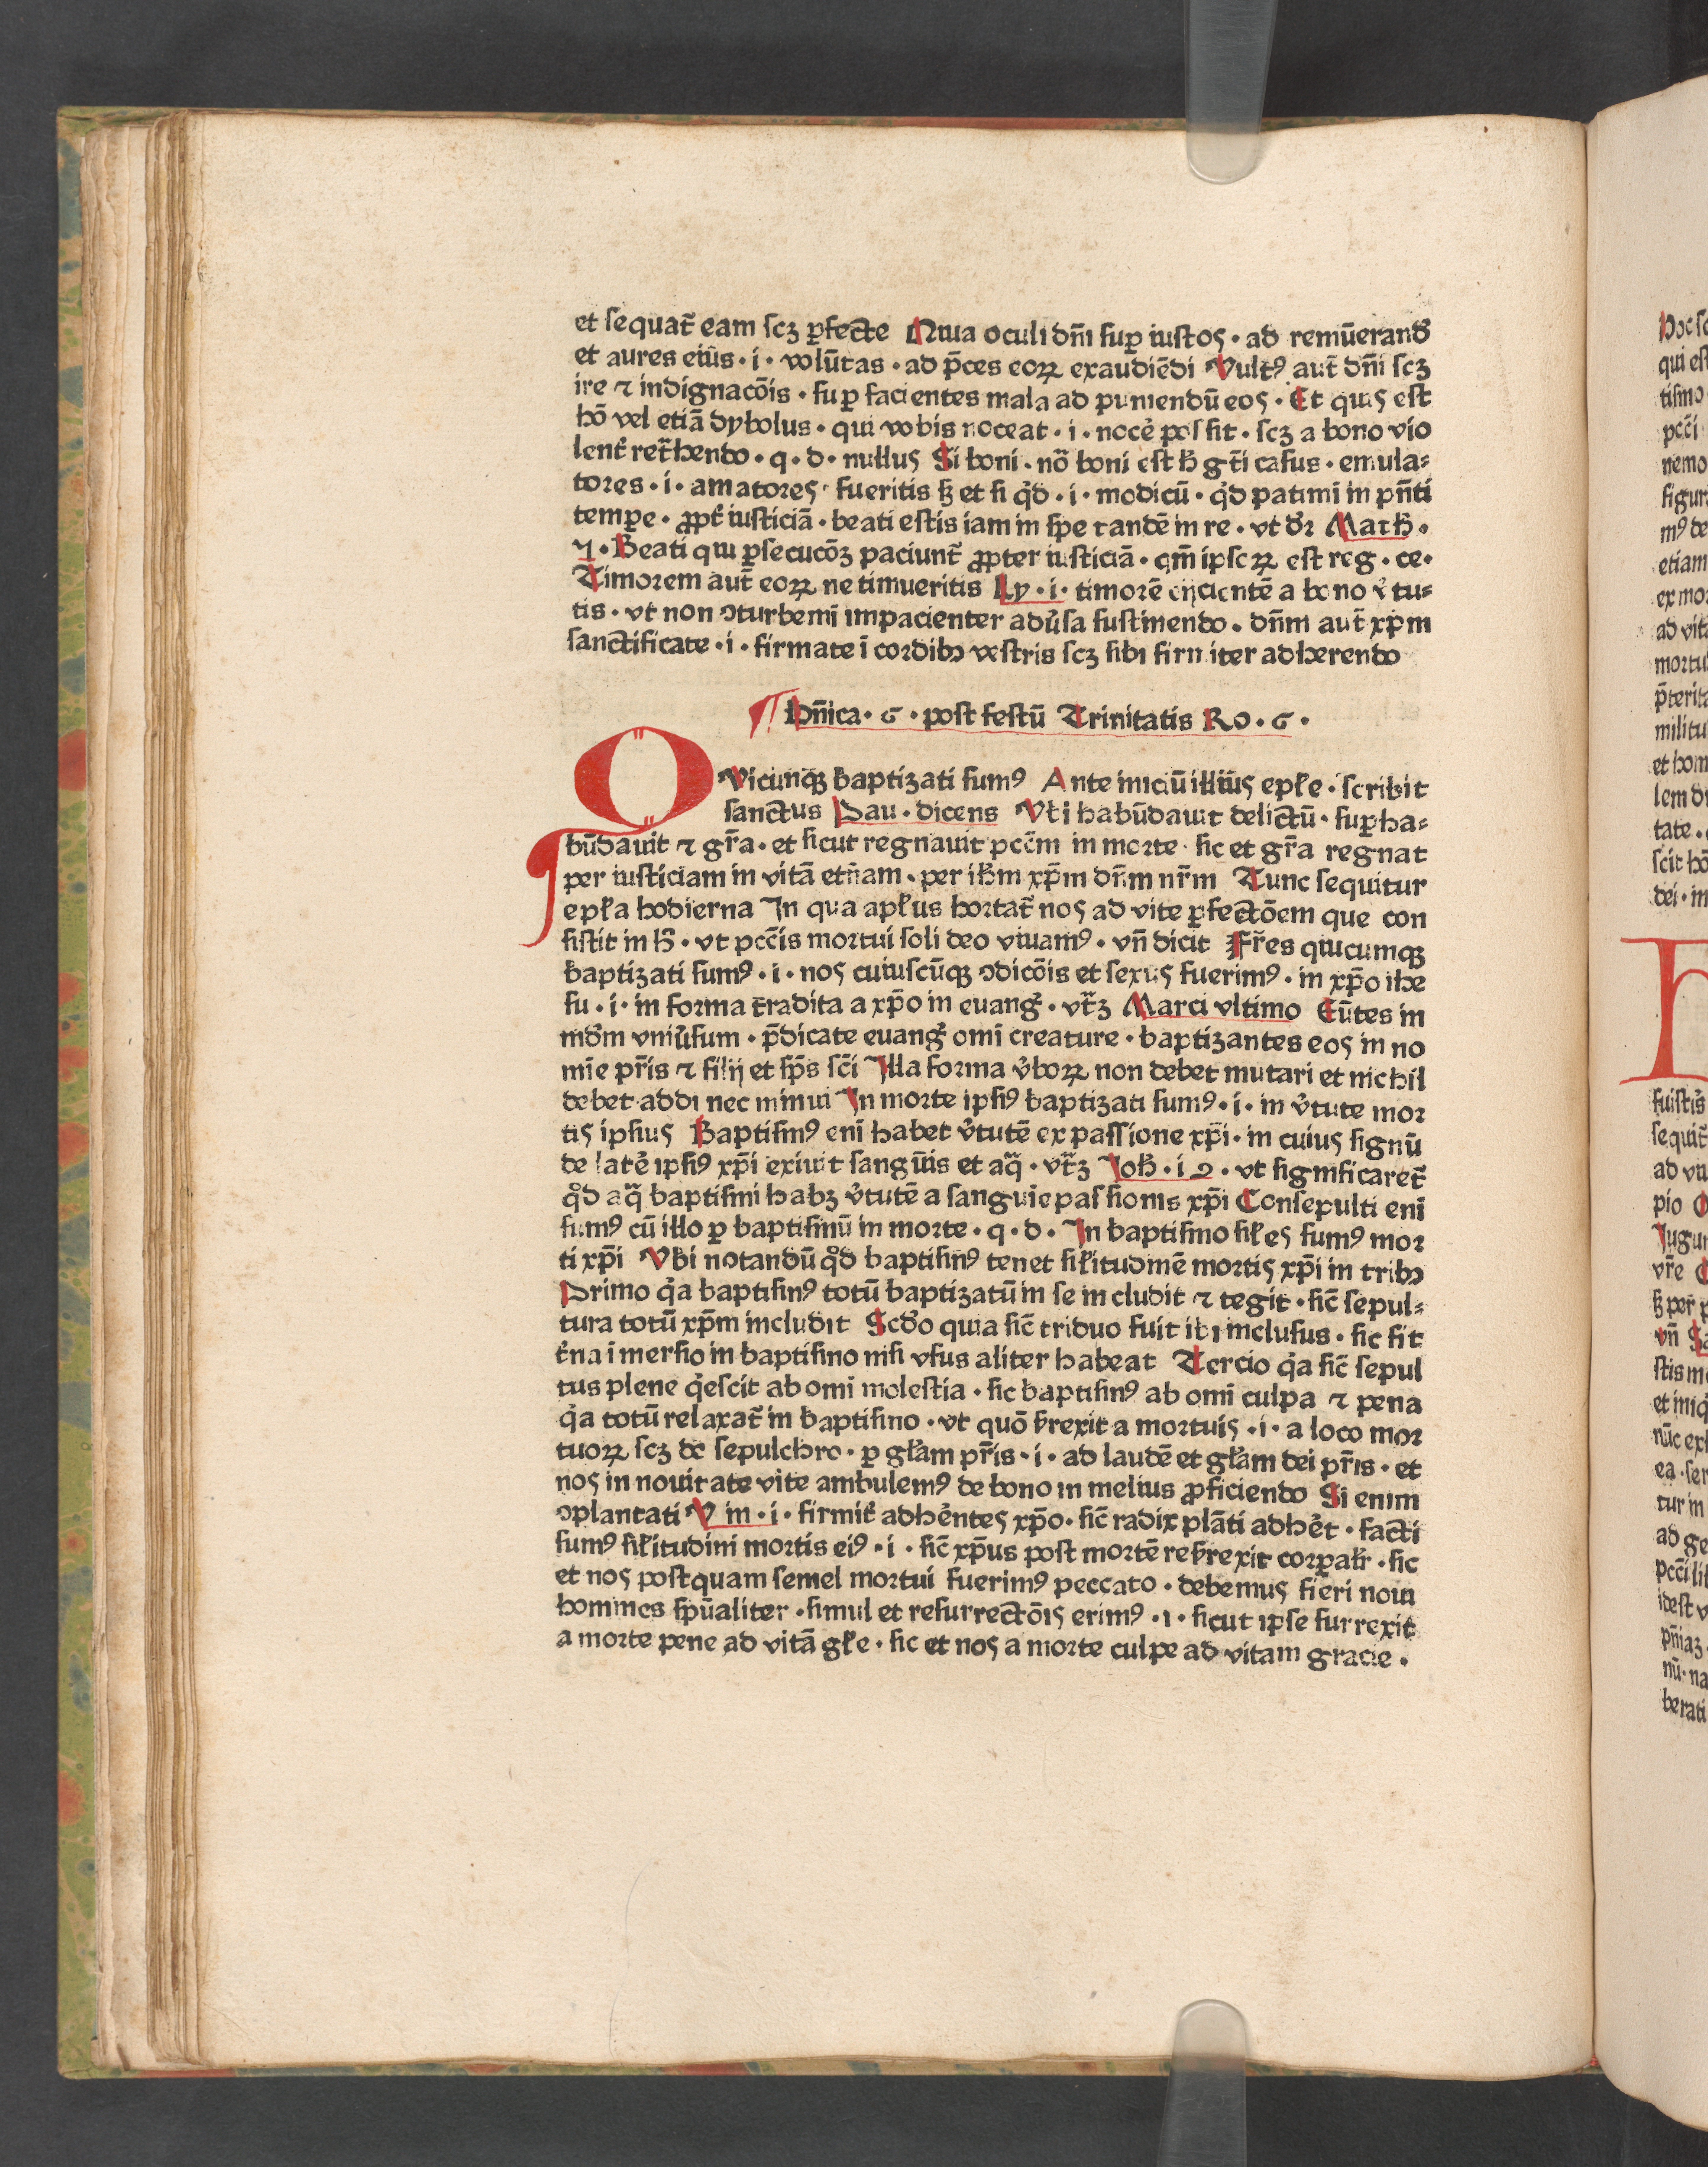 et sequat̃ eam scꝫ ꝑfecte Quia oculi dñi suꝑ iustos · ad remūerand̃
et aures eiūs · i · volūtas · ad p̄ces eoꝝ exaudiēdi Vultꝰ aut̃ dñi scꝫ
ire ⁊ indignacōis · suꝑ facientes mala ad puniendū eos · Et quis est
hō vel etiā dybolus · qui vobis noceat · i · nocẻ possit · scꝫ a bono vio
lent̉ ret̃hendo · q · d · nullus Si boni · nō boni est h̃ gt̄i casus · emula⸗
tores · i · amatores · fueritis sꝫ et si qͥd · i · modicū · qͥd patimī in pñti
tempꝑe · ꝓpt̉ iusticiā · beati estis iam in spe tandē in re · vt dr̃ Math̃ ·
⁊ · Beati qui ꝑsecucōꝫ paciunt̃ ꝓpter iusticiā · qm̄ ipsoꝝ est reg · ce·
Timorem aut̃ eoꝝ ne timueritis Ly · i · timorē eijcientē a bono v̉tu⸗
tis · vt non ꝯturbemī impacienter adv̉sa sustinendo · dñm aut̃ xp̄m
sanctificate · i · firmate ī cordibꝫ vestris scꝫ sibi firmiter adherendo
¶ Dñica · 6 · post festū Trinitatis Ro · 6 ·
QVicunqꝫ baptizati sumꝰ Ante iniciū illiūs epłe · scribit
sanctus Pau · dicens Vbi habūdauit delictū · suꝑha⸗
būdauit ⁊ gr̄a · et sicut regnauit pcc̄m in morte · sic et gr̄a regnat
per iusticiam in vitā etñam · per ih̄m xp̄m dñm nr̄m Tunc sequitur
epła hodierna In qua apłus hortat̃ nos ad vite ꝑfectōem que con
sistit in h̃ · vt pcc̄is mortui soli deo viuamꝰ · vñ dicit Fr̄es quicumqꝫ
baptizati sumꝰ · i · nos cuiuscūqꝫ ꝯdicōis et sexus fuerimꝰ · in xp̄o ihe
su · i · in forma tradita a xp̄o in euang̉ · vt̃ꝫ Marci vltimo Eūtes in
md̄m vniv̉sum · p̄dicate euang̉ omī creature · baptizantes eos in no
mīe pr̄is ⁊ filij et sp̄s sc̄i Illa forma v̉boꝝ non debet mutari et nichil
debet addi nec minui In morte ipsiꝰ baptizati sumꝰ · i · in v̉tute mor
tis ipsius Baptismꝰ enī habet v̉tutē ex passione xp̄i · in cuius signū
de latẻ ipsiꝰ xp̄i exiuit sangūis et aq̃ · vt̃ꝫ Joh̃ · i 2 · vt significaret̃
qͦd aq̃ baptismi habꝫ v̉tutē a sanguie passionis xp̄i Consepulti enī
sumꝰ cū illo ꝑ baptismū in morte · q · d · In baptismo siłes sumꝰ mor
ti xp̄i Vbi notandū qͦd baptismꝰ tenet siłitudinē mortis xp̄i in tribꝫ
Primo qͥa baptismꝰ totū baptizatūm se includit ⁊ tegit · sic̄ sepul⸗
tura totū xp̄m includit Scd̄o quia sic̄ triduo fuit ibi inclusus · sic fit
t̉na īmersio in baptismo nisi vsus aliter habeat Tercio qͥa sic̄ sepul
tus plene qͥescit ab omī molestia · sic baptismꝰ ab omī culpa ⁊ pena
qͥa totū relaxat̃ in baptismo · vt quō s̉rexit a mortuis · i · a loco mor
tuoꝝ scꝫ de sepulchro · ꝑ głam pr̄is · i · ad laudē et głam dei pr̄is · et
nos in nouitate vite ambulemꝰ de bono in melius ꝓficiendo Si enim
ꝯplantati V m · i · firmit̉ adhẻntes xp̄o · sic̄ radix plāti adhẻt · facti
sumꝰ siłitudini mortis eiꝰ · i · sic̄ xp̄us post mortē res̉rexit corꝑalr̃ · sic
et nos postquam semel mortui fuerimꝰ peccato · debemus fieri noui
homines sp̄ualiter · simul et resurrectōis erimꝰ · i · sicut ipse surrexit
a morte pene ad vitā głe · sic et nos a morte culpe ad vitam gracie ·